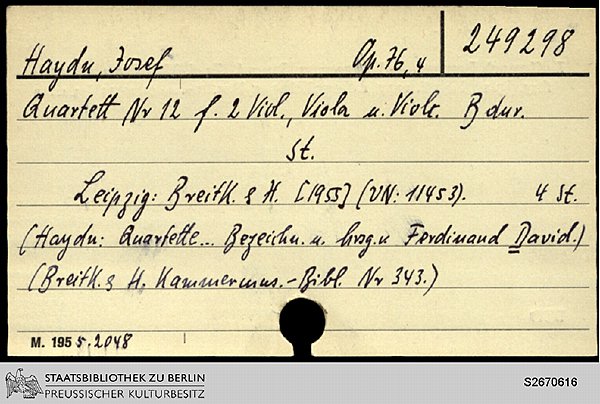 Haydn, Josef Op. 76,4 249298
Quartett Nr 12 f. 2 Viol., Viola u. Violc. B dur.
St.
Leipzig: Breitk. & H. [1955] (VN: 11453). 4 St.
(Haydn: Quartette... Bezeichn. u. hrsg. v. Ferdinand David.)
(Breitk. & H. Kammermus.-Bibl. Nr 343.)
M. 1955.2048
STAATSBIBLIOTHEK ZU BERLIN
PREUSSISCHER KULTURBESITZ
S2670616